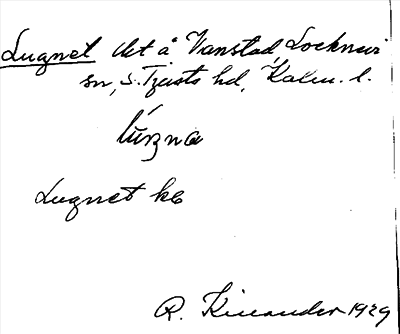 Lugnet tkt å Vanstad, Locknevi
sn, S. Tjusts hd, Kalm. l.
lúŋna
Lugnet kb
R. Kinander 1929